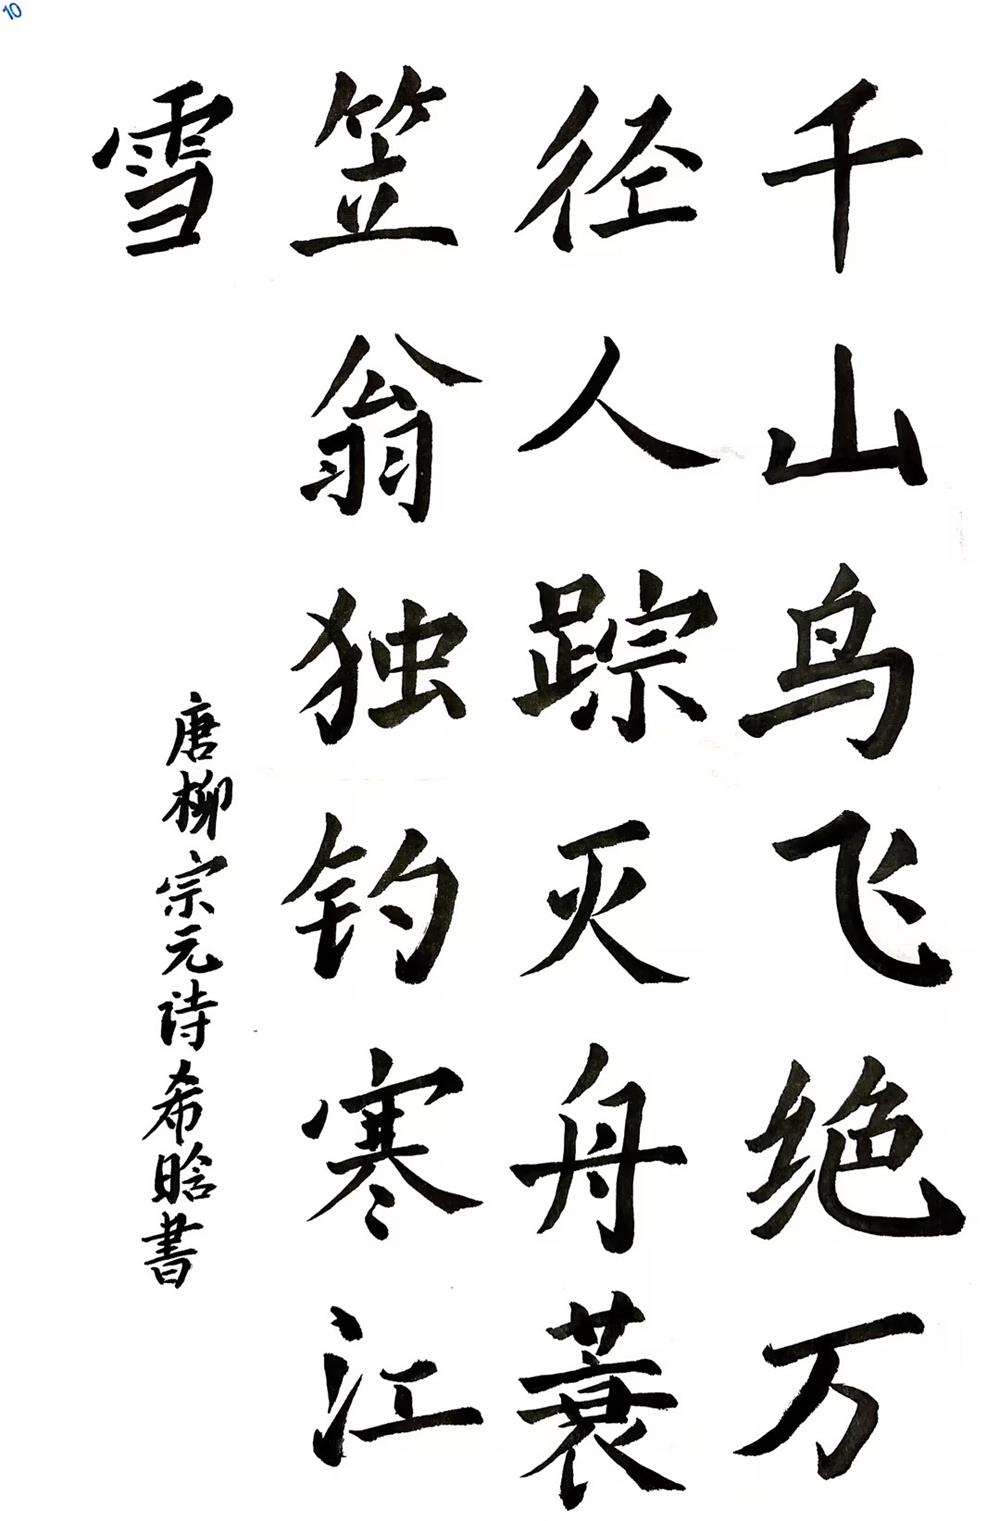 10
千山鸟飞绝万
径人踪灭舟蓑
笠翁独钓寒江
雪
唐柳宗元诗希晗書